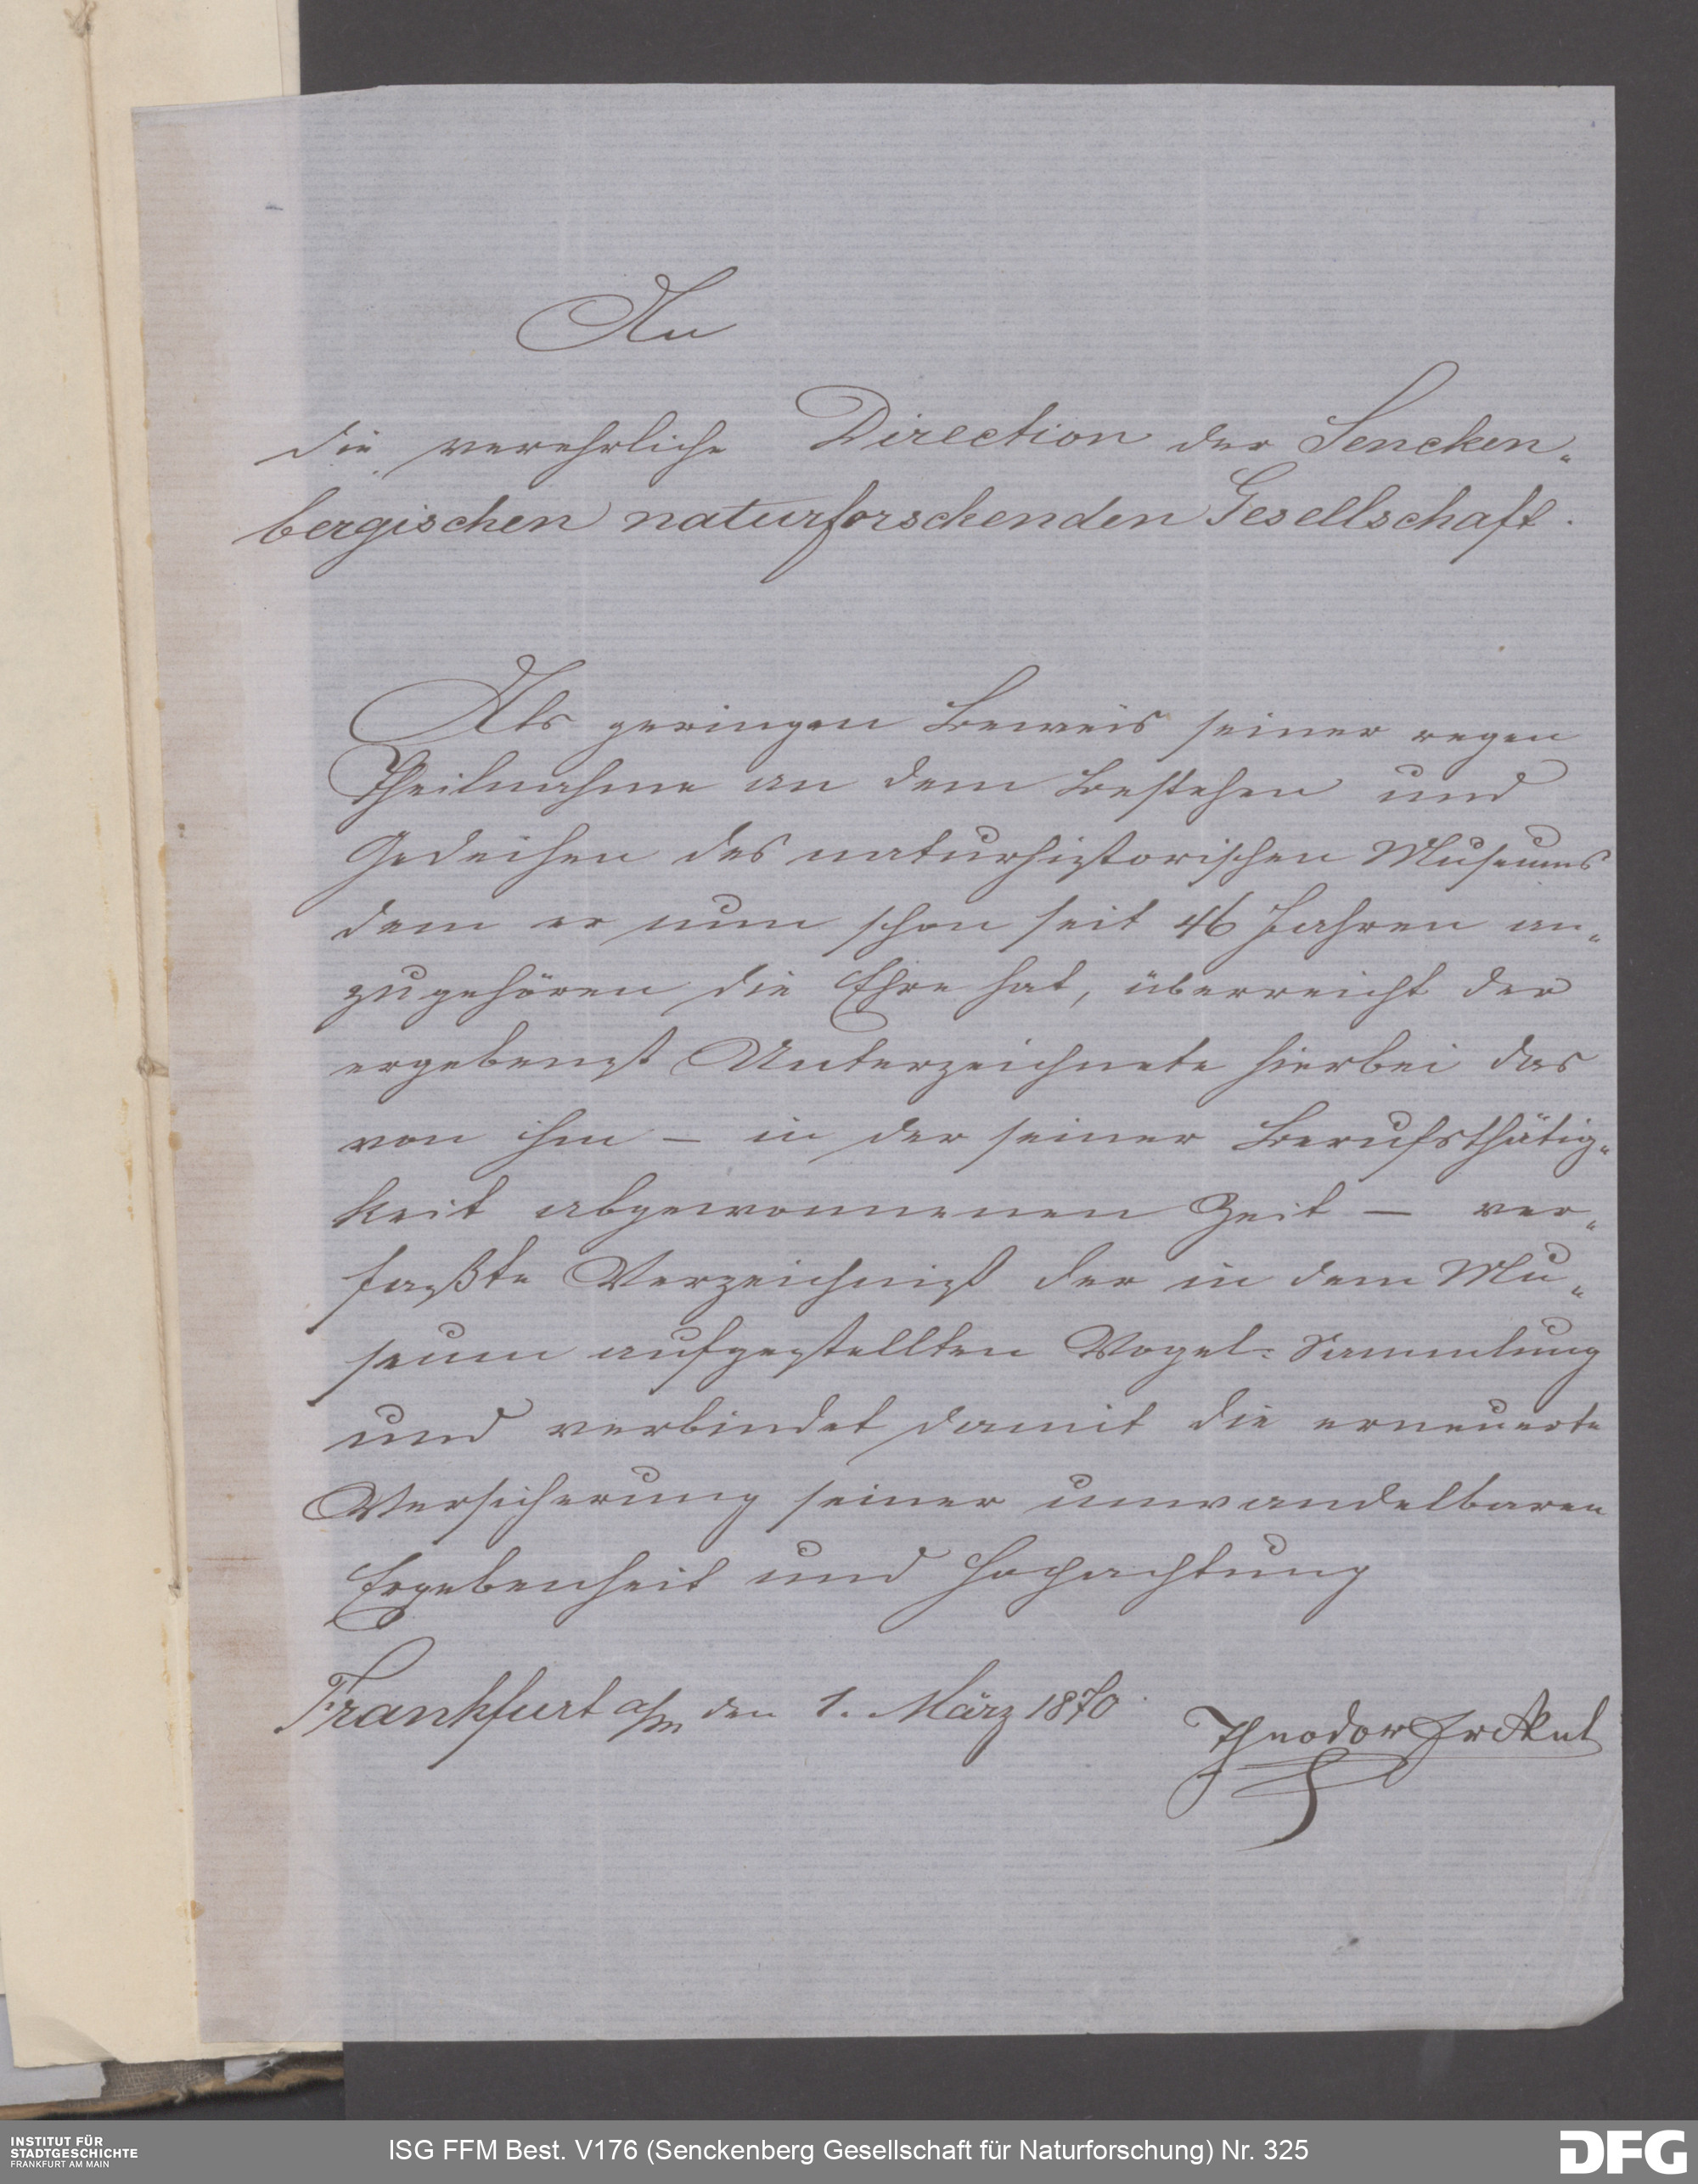 An
die verehrliche Direction der Sencken-
bergischen naturforschenden Gesellschaft.
Als geringen Beweis seiner regen
Theilnahme an dem Bestehen und
Gedeihen des naturhistorischen Museums
dem er nun schon seit 46 Jahren an-
zugehören die Ehre hat, überreicht der
ergebenst Unterzeichnete hierbei das
von ihm – in der seiner Berufsthätig-
keit abgewonnenen Zeit – ver-
faßte Verzeichniß der in dem Mu-
seum aufgestellten Vogel-Sammlung
und verbindet damit die erneuerte
Versicherung seiner unwandelbaren
Ergebenheit und Hochachtung
Frankfurt a/m den 1. März 1870.
Theodor Erckel
INSTITUT FÜR
STADTGESCHICHTE
FRANKFURT AM MAIN
ISG FFM Best. V176 (Senckenberg Gesellschaft für Naturforschung) Nr. 325
DFG